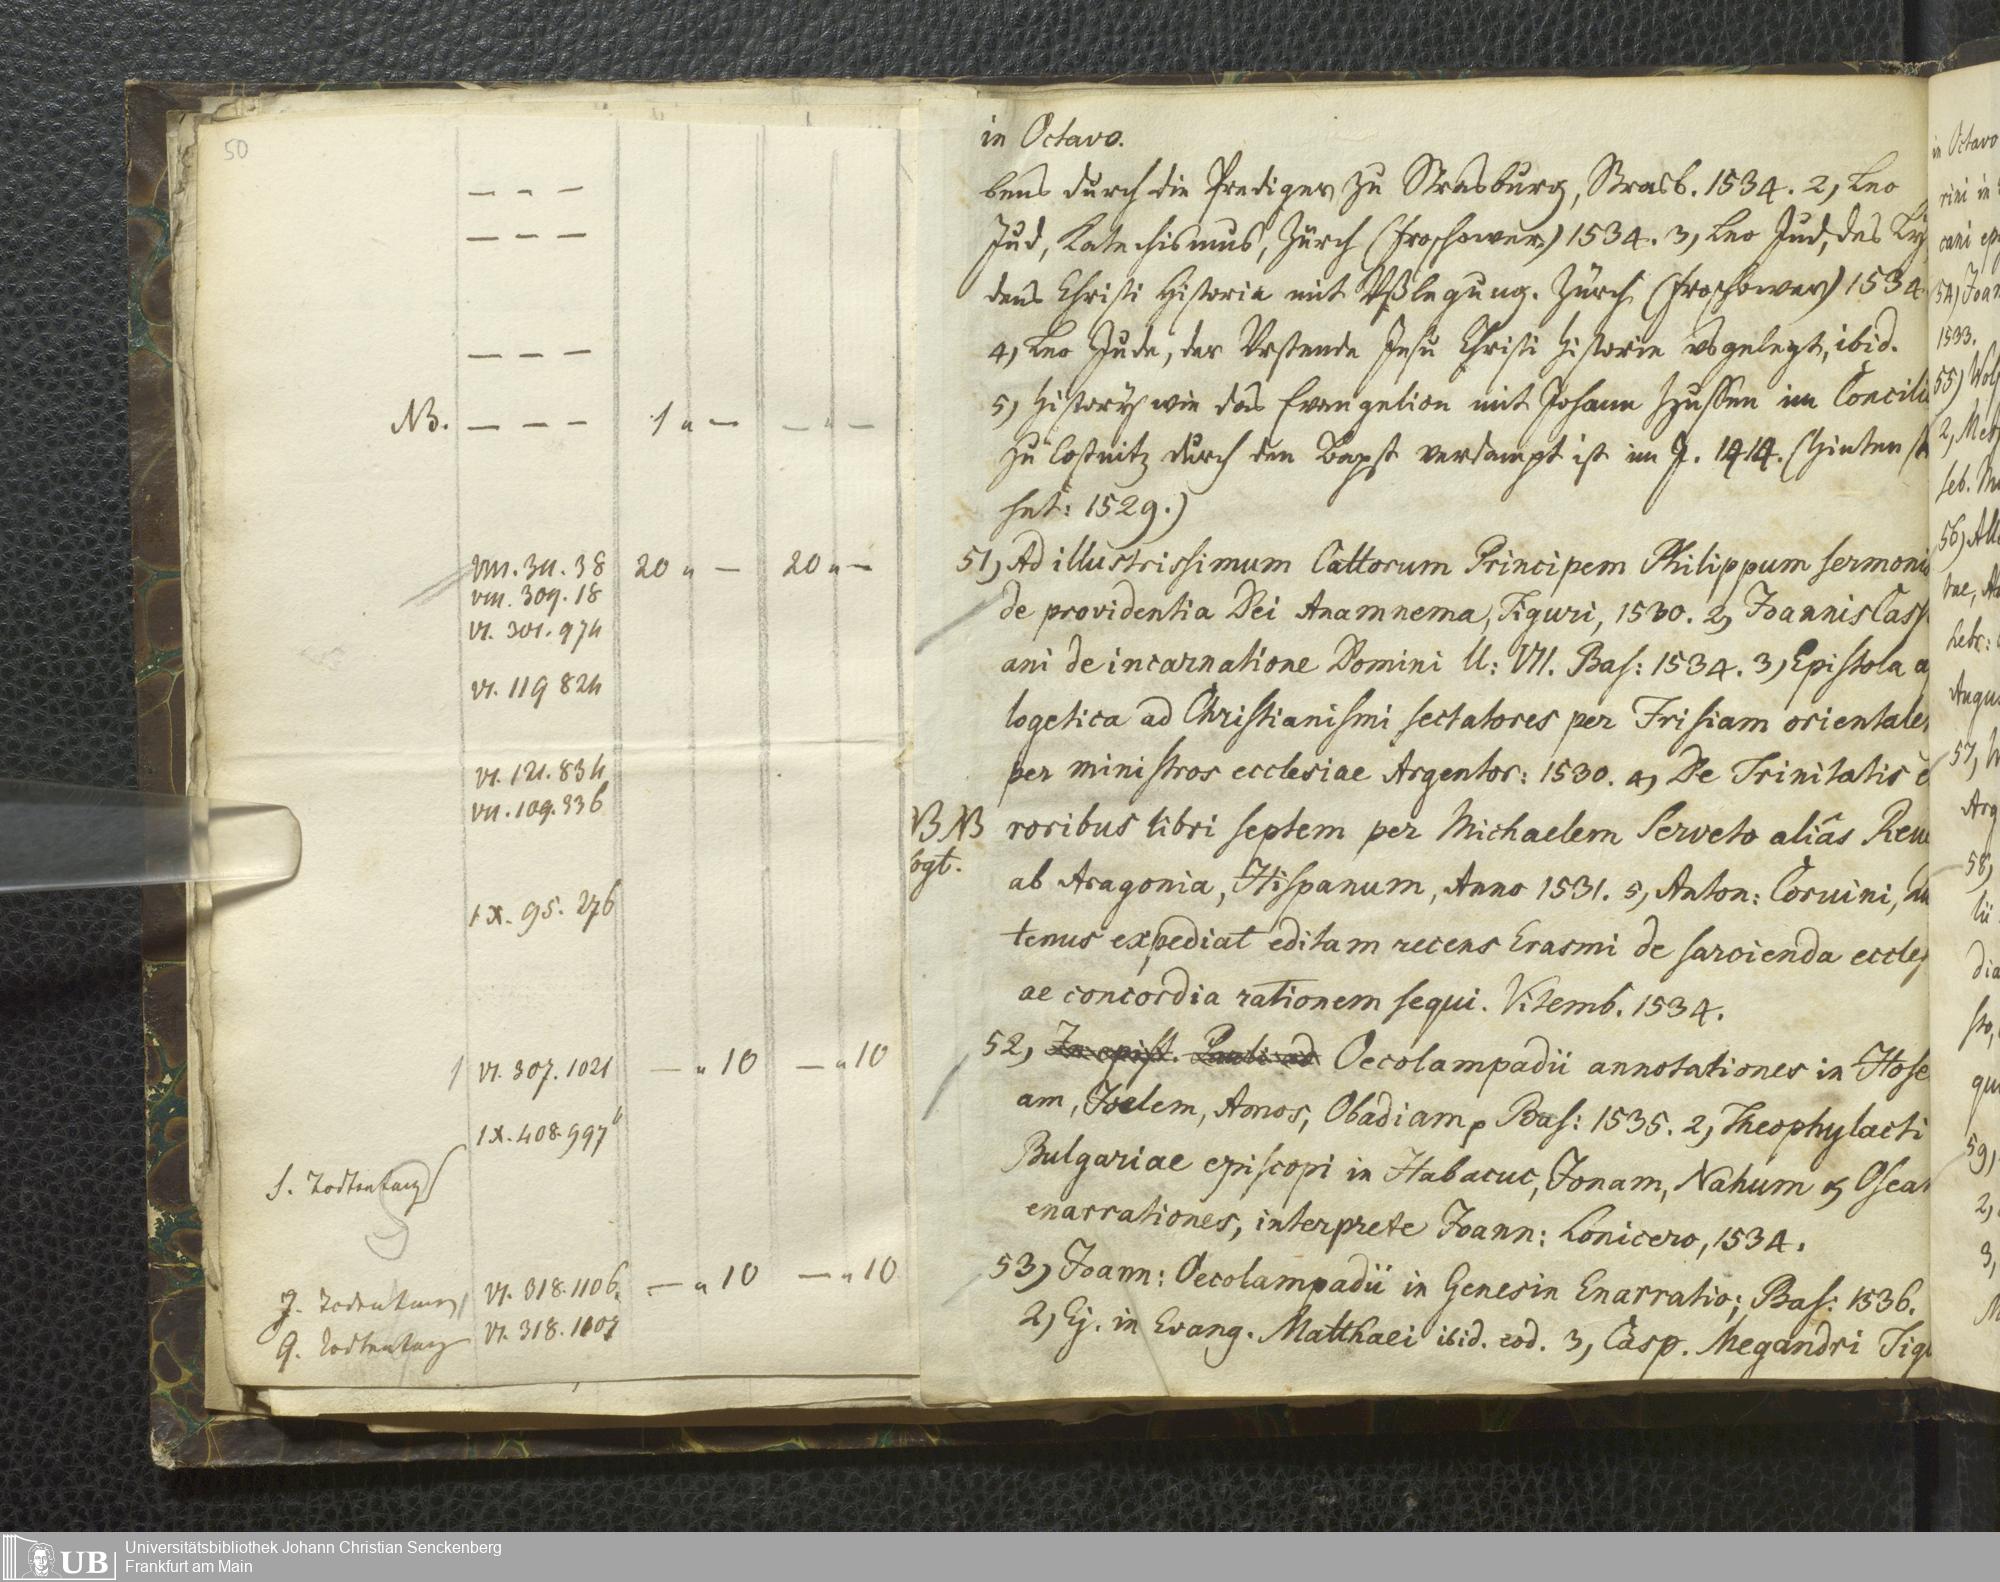 50
— - —
— — —
— — —
NB. — — — 1 „ — — „ —
VIII. 311. 38 20 „ — 20 „ —
VIII. 309. 18
VI. 301. 974
VI. 119 824
VI. 121. 834
VII. 109. 336
IX. 95. 276
VI. 307. 1021 — „ 10 — „ 10
IX. 408. 997
VI. 318. 1106. — „ 10 — „ 10
VI. 318. 1107
in Octavo.
bens durch die Prediger zu Strasburg, Strasb. 1534. 2, Leo
Jud, Katechismus, Zürch (Froschower) 1534. 3, Leo Jud, des Ly
dens Christi Historia mit Vßlegung. Zürch (Froschower) 1534
4, Leo Jude, der Vrstende Jesu Christi Historie vsgelegt, ibid.
5, History wie das Evangelion mit Johann Hussen im Concili
zu Costnitz durch den Bapst verdampt ist im J. 1414. (hinten st
het: 1529.)
51, Ad illustrissimum Cattorum Principem Philippum sermoni
de providentia Dei Anamnema, Tiguri, 1530. 2, Joannis Cass
ani de incarnatione Domini ll: VII. Bas: 1534. 3, Epistola a
logetica ad Christianismi sectatores per Frisiam orientale
per ministros ecclesiae Argentor: 1530. 4, De Trinitatis e
NB NB roribus libri septem per Michaelem Serveto aliâs Reu
ab Aragonia, Hispanum, Anno 1531. 5, Anton: Corvini,
tenus expediat editam recens Erasmi de sarcienda eccles
ae concordia rationem sequi. Vitemb. 1534.
52, In epist. Pauli ad Oecolampadii annotationes in Hose
am, Joelem, Amos, Obadiam, Bas: 1535. 2, Theophylacti
Bulgariae episcopi in Habacuc, Jonam, Nahum & Osea
enarrationes, interprete Joann: Lonicero, 1534.
53, Joann: Oecolampadii in Genesin Enarratio; Bas: 1536.
2, Ej. in Evang. Matthaei ibid. eod. 3, Casp. Megandri Tig
in Octavo
rini in
cani ep
54, Joan
1533.
55, Wol
2, Me
seb. M
56, All
hebr:
Augus
57,
Arg
58,
dia
qu
59,
2,
3,
UB Universitätsbibliothek Johann Christian Senckenberg
Frankfurt am Main